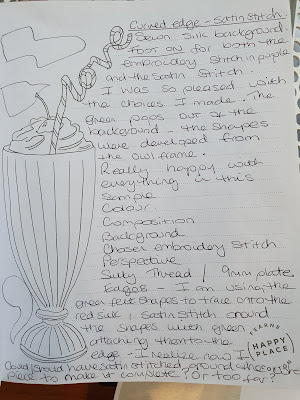 Curved edge - Satin stitch.
Sewn silk background
FOOT ON for both the
embroidery stitch in purple
and the Satin Stitch.
I was so pleased with
the choices I made. The
green pops out of the
background - the shapes
were developed from
the owl frame.
Really happy with
everything in this
Sample
Colour.
Composition
Background
Chosen embroidery Stitch
Perspective
Sulky Thread / 9mm plates
Edges - I am using the
green felt shapes to trace onto the
red silk, satin stitch around
the shapes with green
attaching them to the
edge - I realize now I
Could have satin stitched around the
piece to make it complete? Or too far?
HAPPY
PLACE